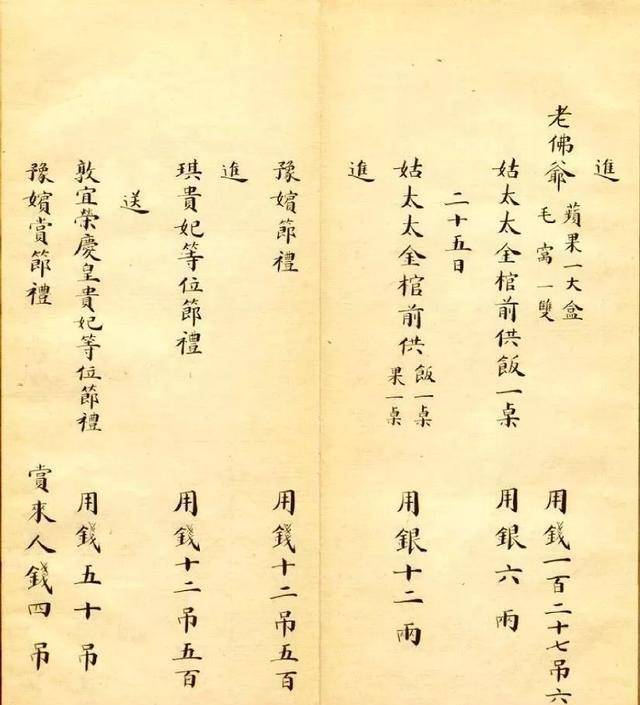 進
老佛爺 蘋果一大盒 毛窩一雙 用錢一百二十七吊六
姑太太全棺前供飯一桌 用銀六兩
二十五日
姑太太全棺前供 飯一桌 果一桌 用銀十二兩
進
豫嬪節禮 用錢十二吊五百
進
琪貴妃等位節禮 用錢十二吊五百
送
敦宜榮慶皇貴妃等位節禮 用錢五十吊
豫嬪賞節禮 賞來人錢四吊